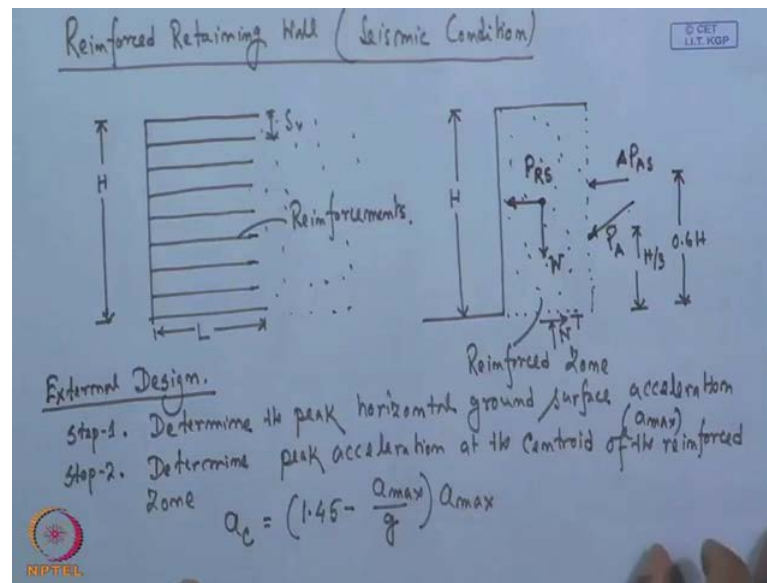 Reinforced Retaining Wall (Seismic Condition)
© CET
I.I.T. KGP
H
Sv
Reinforcements.
L
H
PRS
W
ΔPAS
PA
H/3
0.6H
N
T
Reinforced Zone
External Design.
Step-1. Determine the peak horizontal ground surface acceleration
(amax)
Step-2. Determine peak acceleration at the centroid of the reinforced
Zone
ac = (1.45 - amax/g) amax
NPTEL